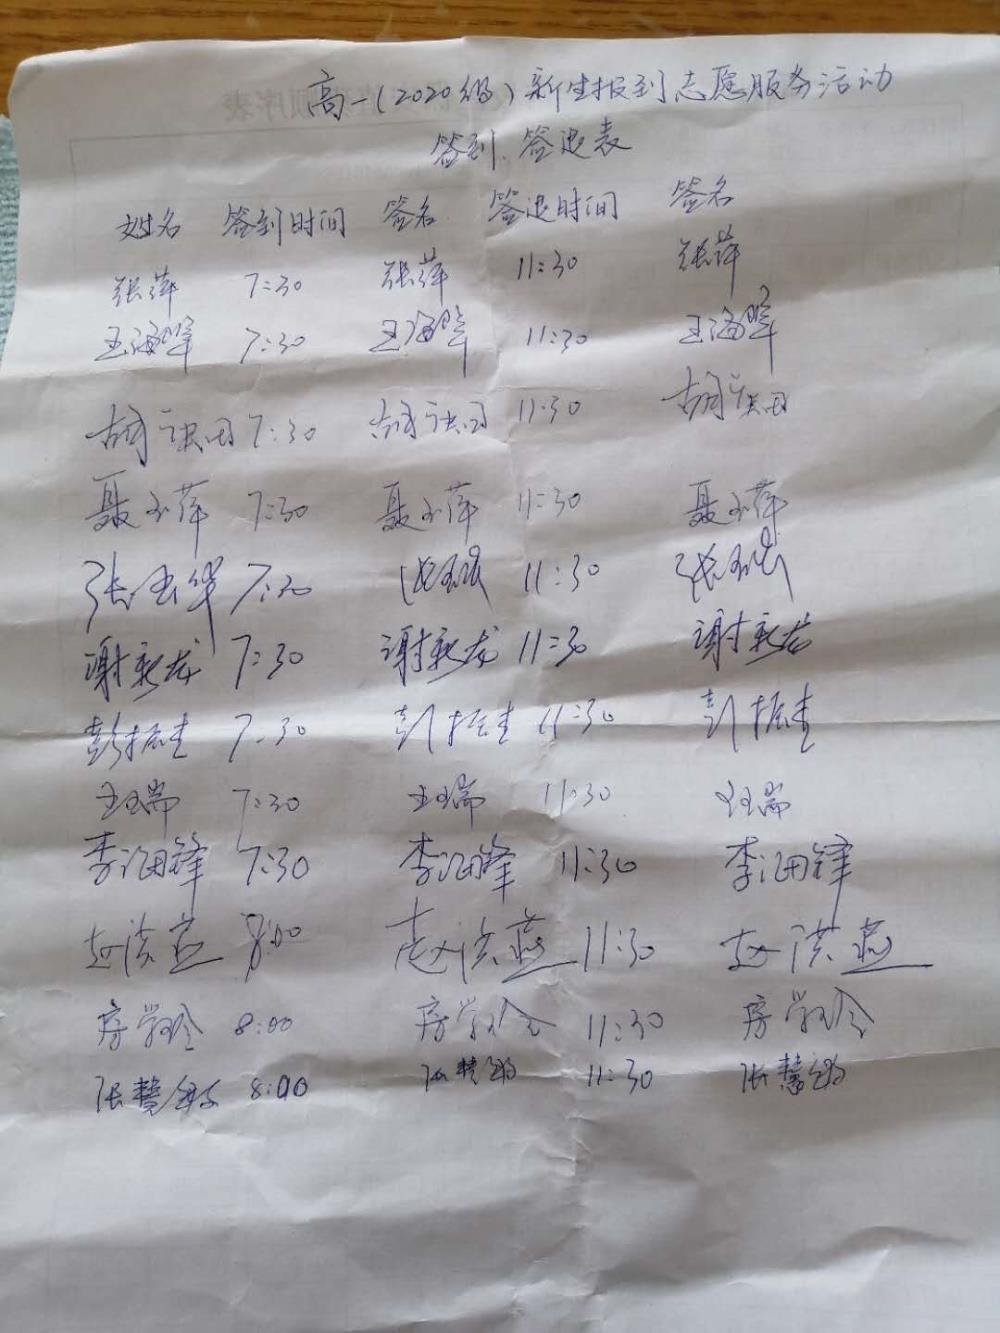 高一(2020级)新生报到志愿服务活动
签到、签退表
姓名 签到时间 签名 签退时间 签名
张萍 7:30 张萍 11:30 张萍
王海峰 7:30 王海峰 11:30 王海峰
胡 7:30 胡 11:30 胡
聂玉萍 7:30 聂玉萍 11:30 聂玉萍
张玉华 7:30 张玉华 11:30 张玉华
谢新龙 7:30 谢新龙 11:30 谢新龙
彭振生 7:30 彭振生 11:30 彭振生
王瑞 7:30 王瑞 11:30 王瑞
李汝锋 7:30 李汝锋 11:30 李汝锋
赵洪燕 8:00 赵洪燕 11:30 赵洪燕
房学玲 8:00 房学玲 11:30 房学玲
张慧敏 8:00 张慧敏 11:30 张慧敏